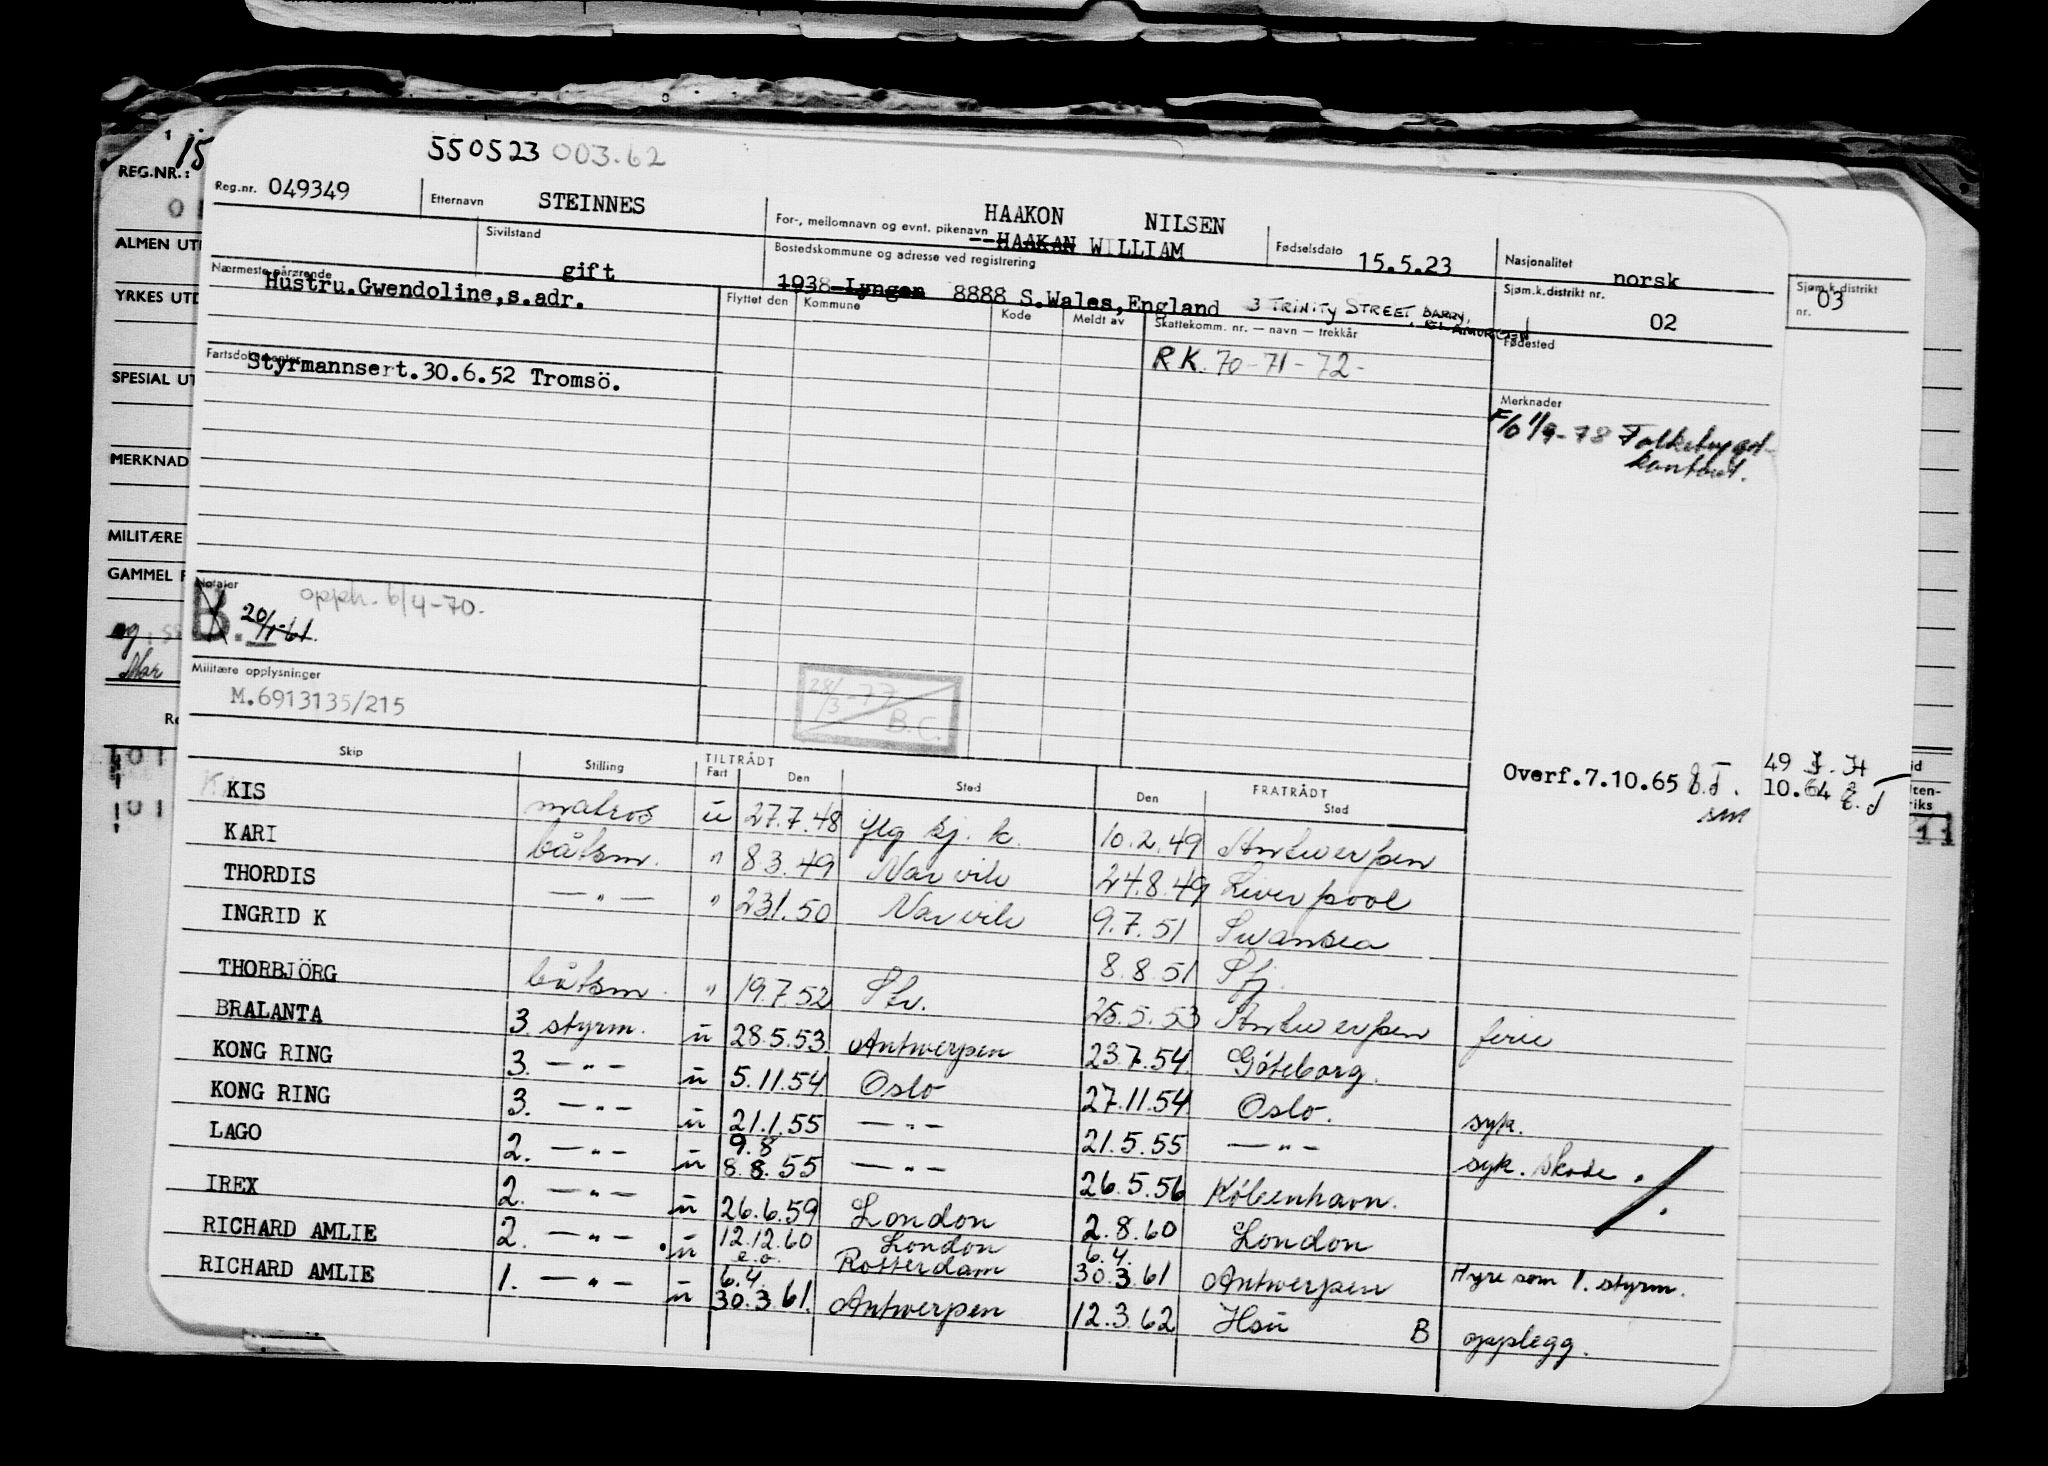 550523 003.62
Reg.nr. 049349 Etternavn STEINNES For-, mellomnavn og evnt. pikenavn HAAKON NILSEN
HAAKAN WILLIAM Fødselsdato 15.5.23 Nasjonalitet norsk
Sivilstand gift Bostedskommune og adresse ved registrering
1938 Lyngen 8888 S.Wales, England 3 TRINITY STREET BARRY, GLAMORGEN
Sjøm.k.distrikt nr. 02
Sjøm.k.distrikt nr. 03
Nærmeste pårørende Hustru.Gwendoline,s.adr.
Flyttet den Kommune Kode Meldt av Skattekomm. nr. — navn — trekkår Fødested
RK. 70-71-72-
Fartsdokumenter Styrmannsert.30.6.52 Tromsö.
Merknader
F/O 1/9-78 Folketrygd-
kontoret.
Notater
B. 20/1-61. opph. 6/4-70.
Militære opplysninger
M.6913135/215
28/3-77
B.C.
Overf.7.10.65
49
10.64
Skip Stilling TILTRÅDT Fart Den Sted FRATRÅDT Den Sted
KIS matros u 27.7.48 10.2.49 Antwerpen
KARI båtsm. " 8.3.49 Narvik 24.8.49 Liverpool
THORDIS — " — " 23.1.50 Narvik 9.7.51 Swansea
INGRID K 8.8.51 Sfj.
THORBJÖRG båtsm. " 19.7.52 25.5.53 Antwerpen ferie
BRALANTA 3. styrm. u 28.5.53 Antwerpen 23.7.54 Göteborg.
KONG RING 3. — " — u 5.11.54 Oslo 27.11.54 Oslo. syk.
KONG RING 3. — " — u 21.1.55 — " — 21.5.55 — " — syk. skade.
LAGO 2. — " — u 9.8 8.8.55 — " — 26.5.56 København.
IREX 2. — " — u 26.6.59 London 2.8.60 London
RICHARD AMLIE 2. — " — u 12.12.60 e.o. London Rotterdam 6.4. 30.3.61 Antwerpen Hyre som 1. styrm.
RICHARD AMLIE 1. — " — u 6.4. 30.3.61. Antwerpen 12.3.62 B opplegg.
15
REG.NR.:
ALMEN UT
YRKES UTD
SPESIAL UT
MERKNAD
MILITÆRE
GAMMEL